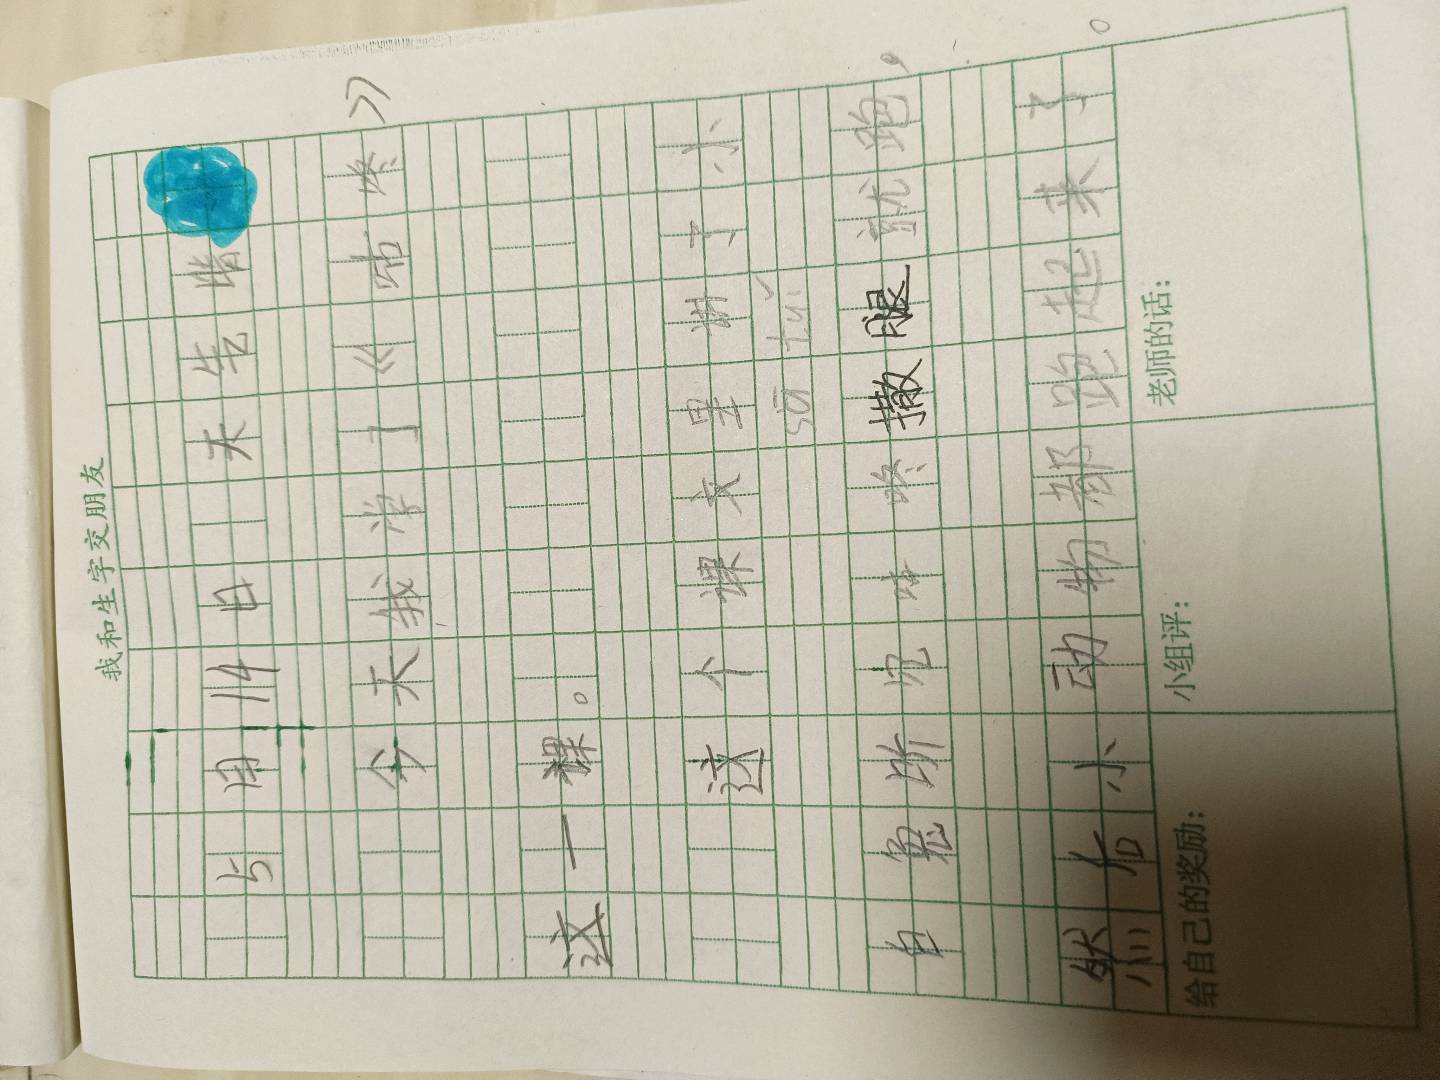 我和生字交朋友
5月14日 天气晴
今天我学了《咕咚》
这一课。
这个课文里讲了小
sā tuǐ
白兔听见咕咚撒腿就跑，
然后小动物都跑起来了。
给自己的奖励：
小组评：
老师的话：